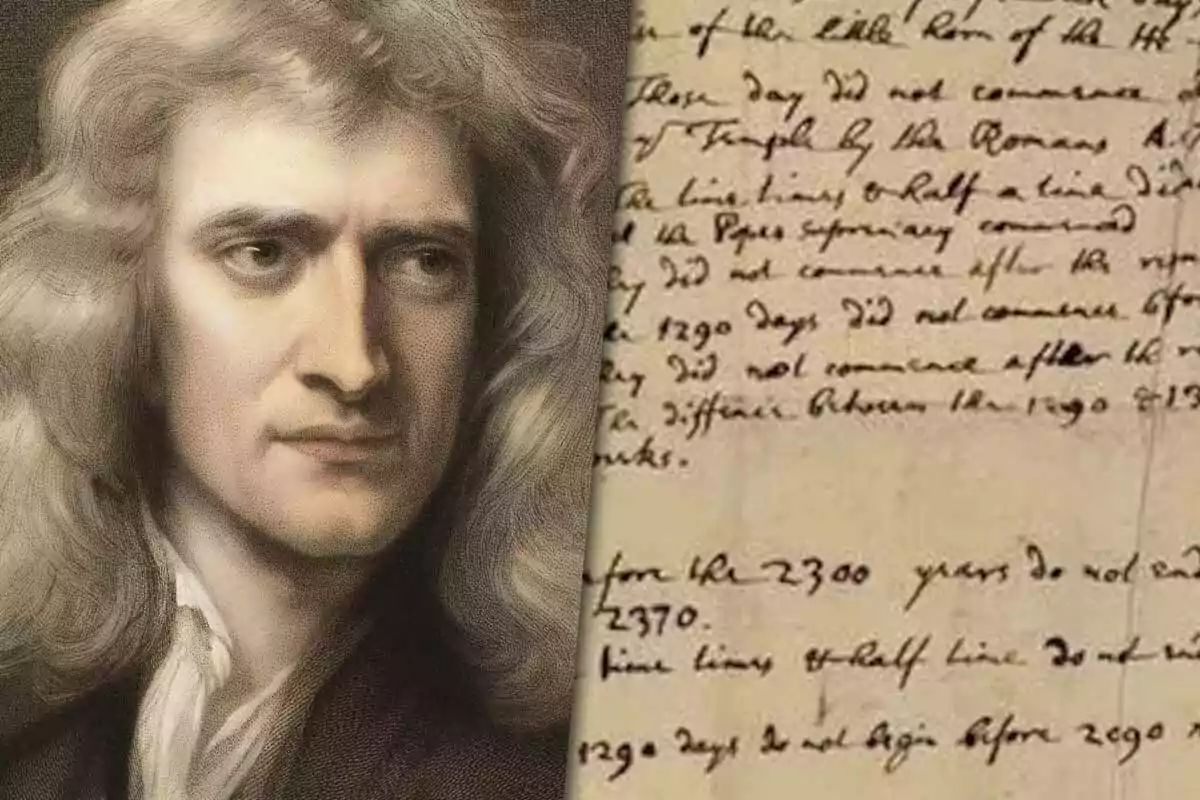 of the little horn of the He
Those day did not commence
yͤ Temple by the Romans A.
The time times & half a time did
the Popes supremacy commenced
did not commence after the
1290 days did not commence befo
did not commence after the
The difference between the 1290 & 13
fore the 2300 years do not end
2370.
time times & half time do not
1290 days do not begin before 2090